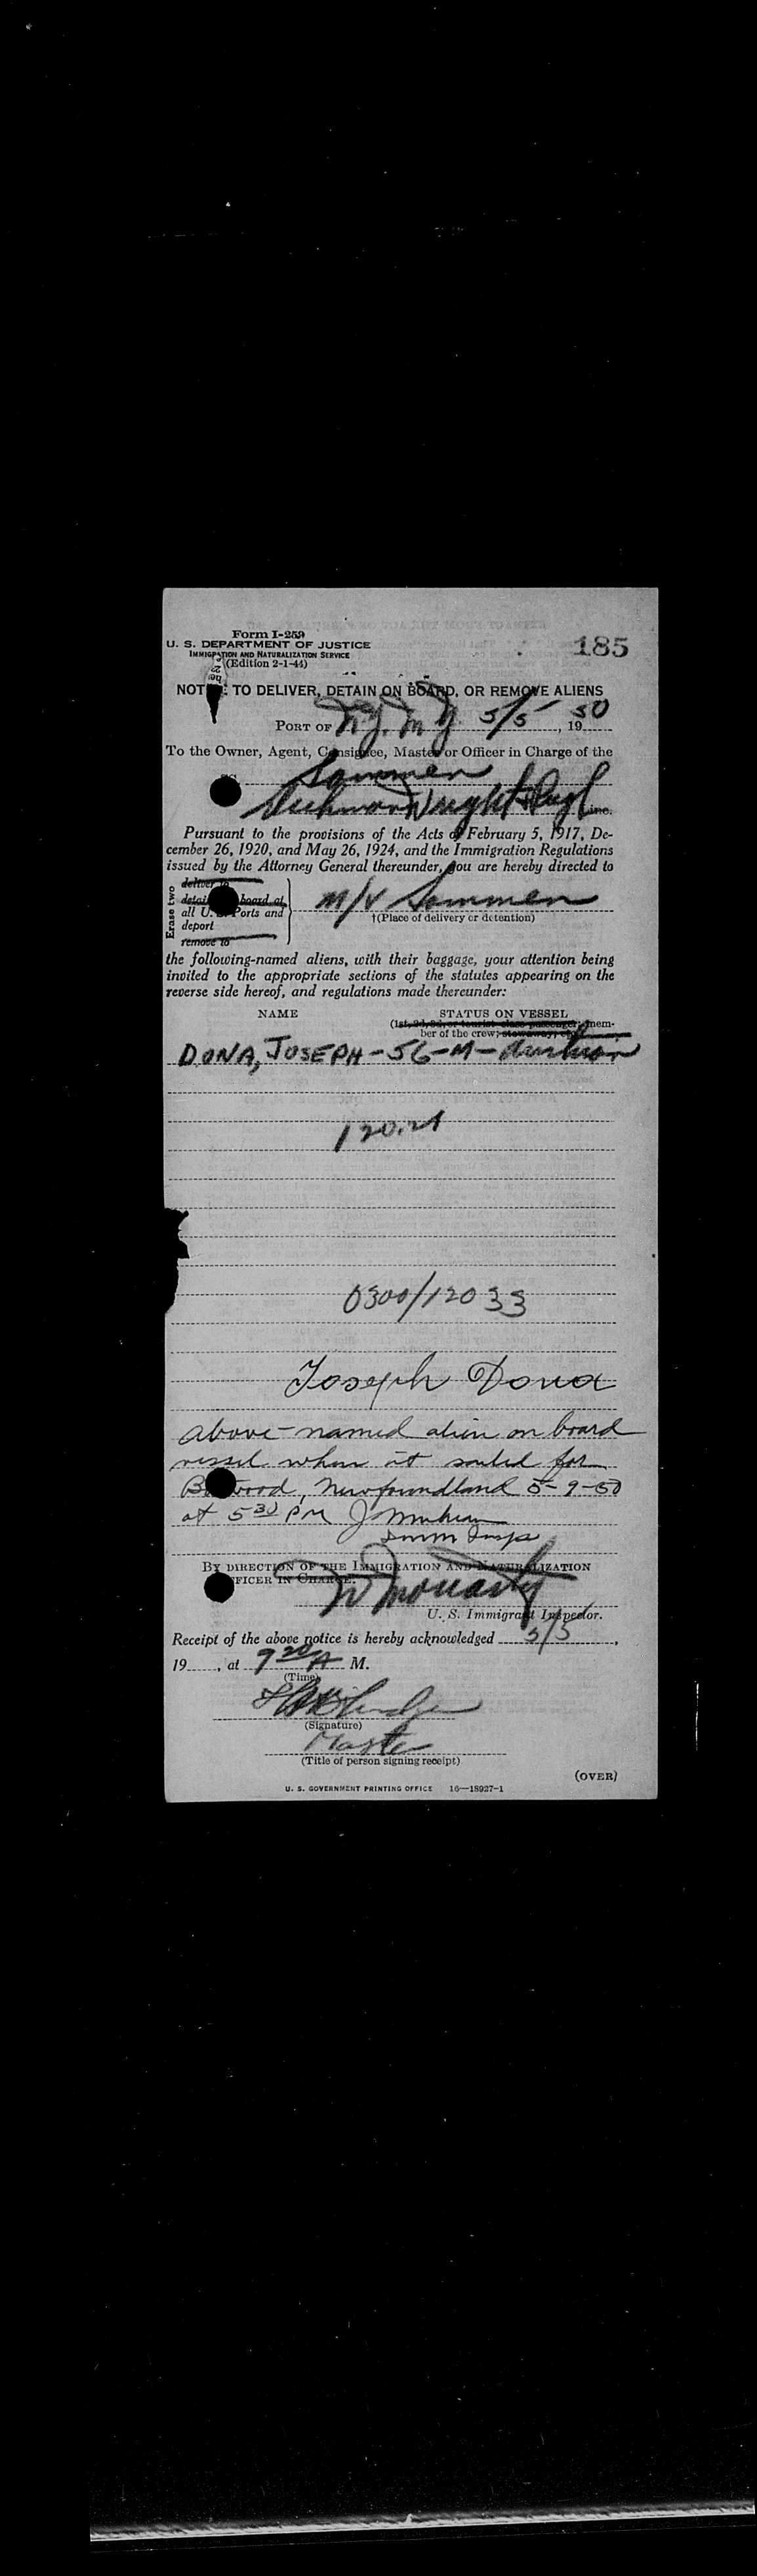 Form I-259
U. S. DEPARTMENT OF JUSTICE
IMMIGRATION AND NATURALIZATION SERVICE
(Edition 2-1-44)
185
NOTICE TO DELIVER, DETAIN ON BOARD, OR REMOVE ALIENS
PORT OF N.Y. N Y 5/5, 1950
To the Owner, Agent, Consignee, Master or Officer in Charge of the
Sommen
Wright Line.
Pursuant to the provisions of the Acts of February 5, 1917, De-
cember 26, 1920, and May 26, 1924, and the Immigration Regulations
issued by the Attorney General thereunder, you are hereby directed to
Erase two
deliver to
detain on board at
all U. S. Ports and
deport
remove to
M/V Sommen
†(Place of delivery or detention)
the following-named aliens, with their baggage, your attention being
invited to the appropriate sections of the statutes appearing on the
reverse side hereof, and regulations made thereunder:
NAME STATUS ON VESSEL
(1st, 2d, 3d, or tourist class passenger; mem-
ber of the crew; stowaway, etc.)
DONA, JOSEPH - 56 - M - Austrian
120.21
0300/12033
Joseph Dona
above-named alien on board
vessel when it sailed for
Botwood, Newfoundland 5-9-50
at 5 30 PM J
Imm Insp
BY DIRECTION OF THE IMMIGRATION AND NATURALIZATION
OFFICER IN CHARGE:
U. S. Immigrant Inspector.
Receipt of the above notice is hereby acknowledged 5/5,
19, at 9 20 A M.
(Time)
(Signature)
Master
(Title of person signing receipt)
(OVER)
U. S. GOVERNMENT PRINTING OFFICE 16—18927-1